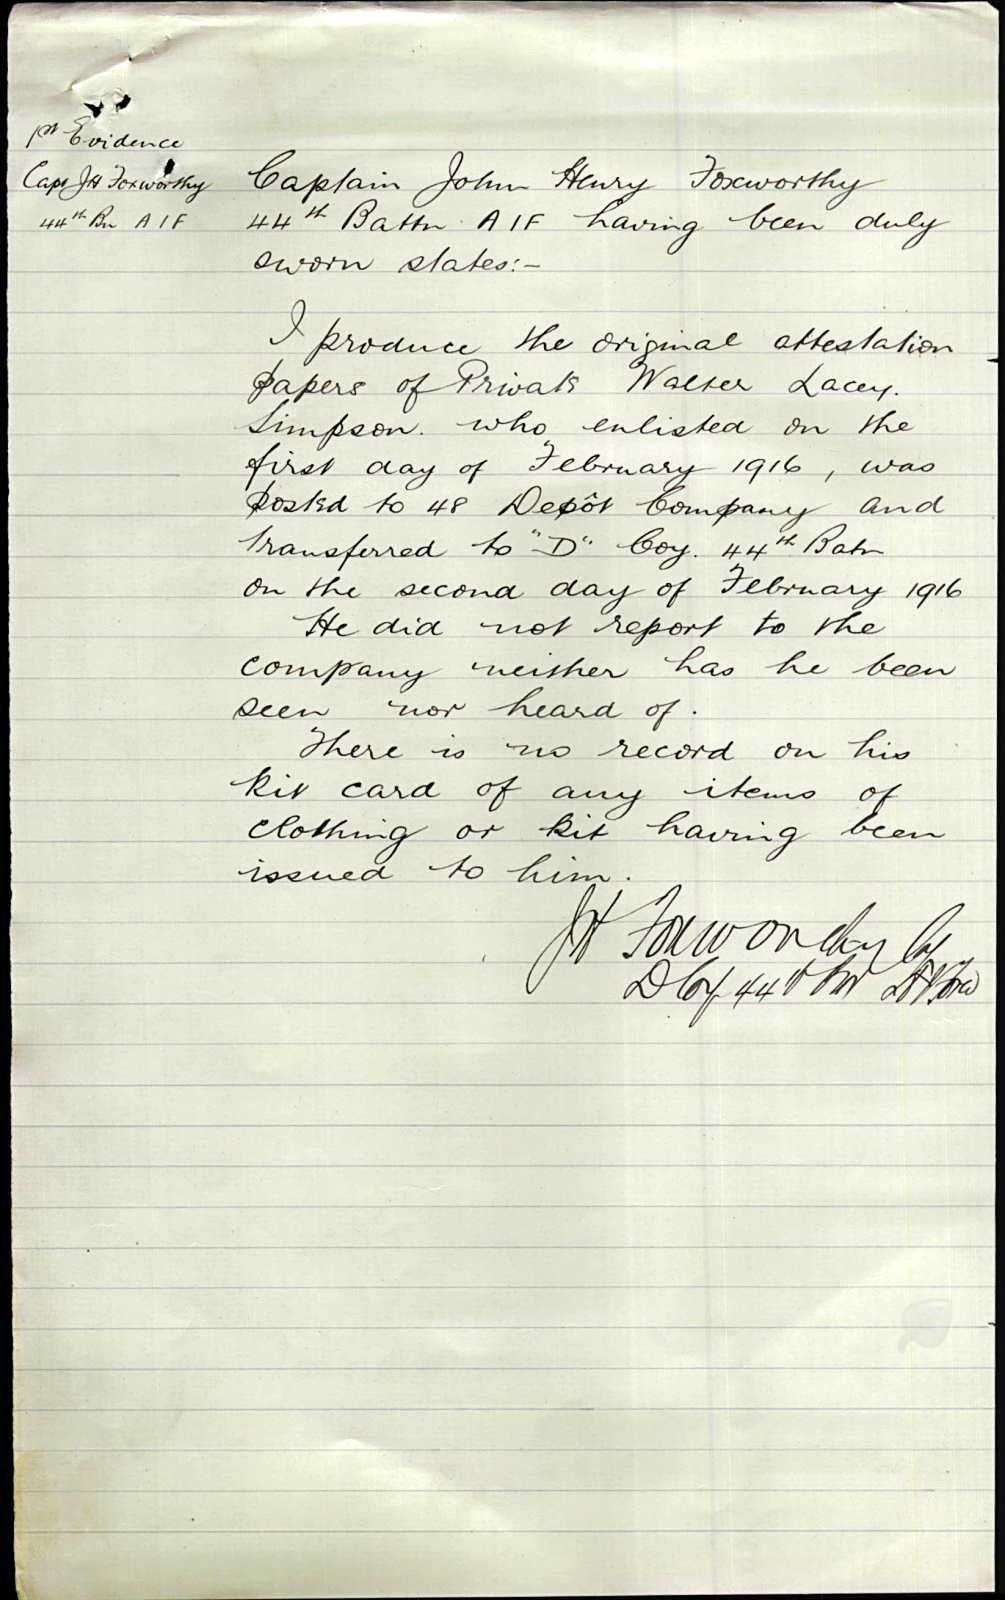 1st Evidence
Capt JH Foxworthy
44th Bn A I F
Captain John Henry Foxworthy
44th Battn A I F having been duly
sworn states:-
I produce the original attestation
papers of Private Walter Lacey.
Simpson. who enlisted on the
first day of February 1916, was
posted to 48 Depôt Company and
transferred to "D" Coy. 44th Batn
on the second day of February 1916
He did not report to the
company neither has he been
seen nor heard of.
There is no record on his
kit card of any items of
clothing or kit having been
issued to him.
JH Foxworthy
D Coy 44th Bn